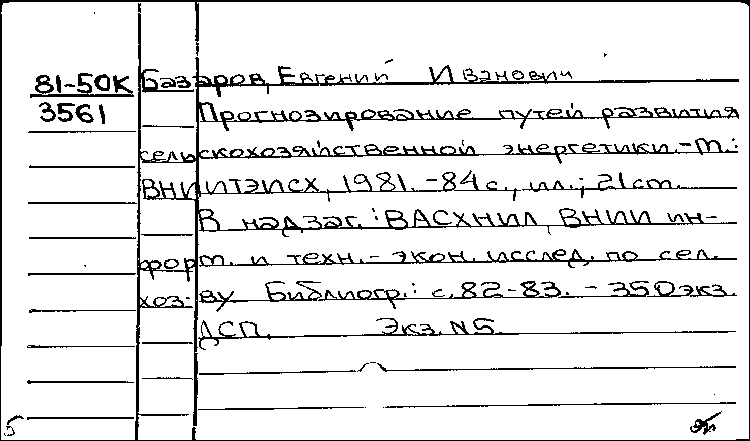 81-50К Базаров, Евгений Иванович
3561 Прогнозирование путей развития
сельскохозяйственной энергетики.-М.:
ВНИИТЭИСХ, 1981.-84с., ил.; 21см.
В надзаг.: ВАСХНИЛ, ВНИИ ин-
форм. и техн.-экон. исслед. по сел.
хоз-ву. Библиогр.: с.82-83. - 350экз.
ДСП. Экз. №5.
5